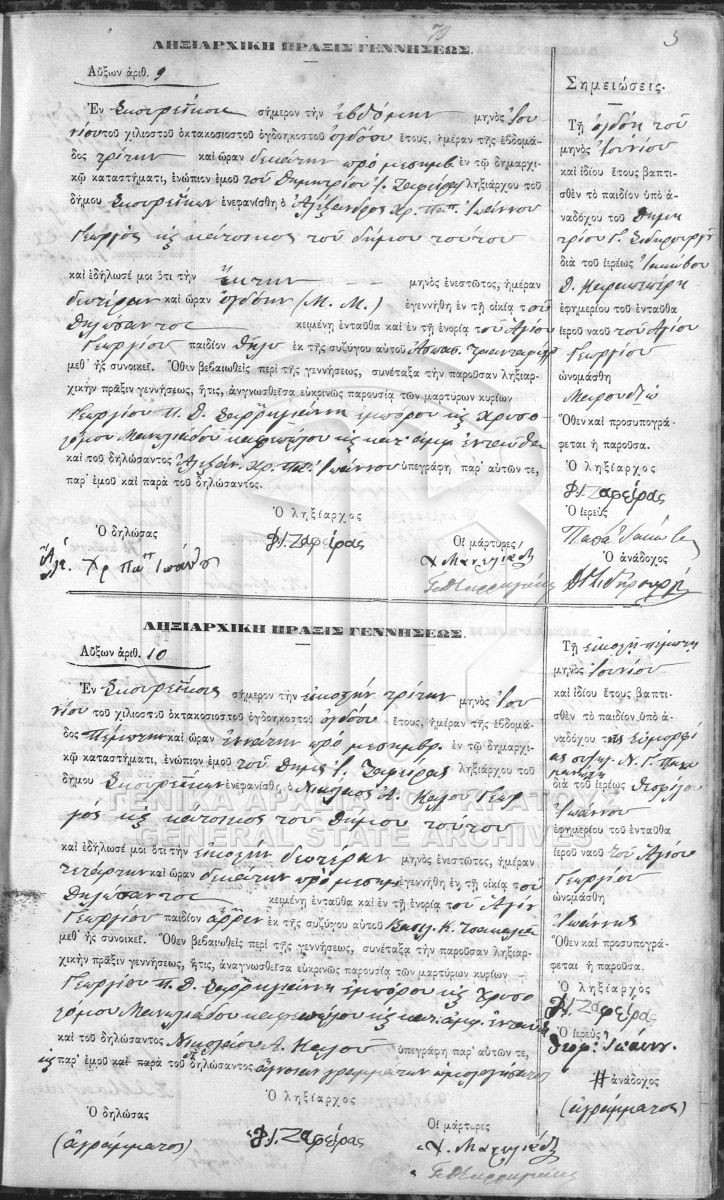 3
ΛΗΞΙΑΡΧΙΚΗ ΠΡΑΞΙΣ ΓΕΝΝΗΣΕΩΣ.
Αὔξων ἀριθ. 9
Ἐν σήμερον τὴν ἑβδόμην μηνὸς Ἰου
νίου τοῦ χιλιοστοῦ ὀκτακοσιοστοῦ ὀγδοηκοστοῦ ὀγδόου ἔτους, ἡμέραν τῆς ἑβδομά-
δος τρίτην καὶ ὥραν δεκάτην πρὸ μεσημβ. ἐν τῷ δημαρχι-
κῷ καταστήματι, ἐνώπιον ἐμοῦ τοῦ Δημητρίου Ι. Ζαφείρη ληξιάρχου τοῦ
δήμου ἐνεφανίσθη ὁ Ἀλέξανδρος Χρ. Παπ. Ἰωάννου
Γεωργὸς κ κάτοικος τοῦ δήμου τούτου
καὶ ἐδήλωσέ μοι ὅτι τὴν ἕκτην μηνὸς ἐνεστῶτος, ἡμέραν
δευτέραν καὶ ὥραν ὀγδόην (Μ. Μ.) ἐγεννήθη ἐν τῇ οἰκίᾳ τοῦ
δηλώσαντος κειμένῃ ἐνταῦθα καὶ ἐν τῇ ἐνορίᾳ τοῦ Ἁγίου
Γεωργίου παιδίον θῆλυ ἐκ τῆς συζύγου αὐτοῦ
μεθ' ἧς συνοικεῖ. Ὅθεν βεβαιωθεὶς περὶ τῆς γεννήσεως, συνέταξα τὴν παροῦσαν ληξιαρ-
χικὴν πρᾶξιν γεννήσεως, ἥτις, ἀναγνωσθεῖσα εὐκρινῶς παρουσίᾳ τῶν μαρτύρων κυρίων
Γεωργίου Π. Θ. ἐμπόρου κ Χρυσο
στόμου Μανωλιάδου καφεπώλου κ κατ. ἀμφ. ἐνταῦθα
καὶ τοῦ δηλώσαντος Ἀλεξάν. Χρ. Παπ. Ἰωάννου ὑπεγράφη παρ' αὐτῶν τε,
παρ' ἐμοῦ καὶ παρὰ τοῦ δηλώσαντος.
Ὁ δηλώσας
Ἀλέ. Χρ Παπ Ἰωάν
Ὁ ληξίαρχος
Δ. Ι. Ζαφείρας
Οἱ μάρτυρες
Χ. Μανωλιάδης
Σημειώσεις.
Τῇ ὀγδόῃ τοῦ
μηνὸς Ἰουνίου
καὶ ἰδίου ἔτους βαπτι-
σθὲν τὸ παιδίον ὑπὸ ἀ-
ναδόχου τοῦ Δημη
τρίου Γ. Σιδηρουργ
διὰ τοῦ ἱερέως Ἰακώβου
ἐφημερίου τοῦ ἐνταῦθα
ἱεροῦ ναοῦ τοῦ Ἁγίου
Γεωργίου
ὠνομάσθη
Μαρουδιώ
Ὅθεν καὶ προσυπογρά-
φεται ἡ παροῦσα.
Ὁ ληξίαρχος
Δ. Ι. Ζαφείρας
Ὁ ἱερεὺς
Παπᾶ Ἰακώβ
Ὁ ἀνάδοχος
ΛΗΞΙΑΡΧΙΚΗ ΠΡΑΞΙΣ ΓΕΝΝΗΣΕΩΣ.
Αὔξων ἀριθ. 10
Ἐν σήμερον τὴν εἰκοστὴν τρίτην μηνὸς Ἰου
νίου τοῦ χιλιοστοῦ ὀκτακοσιοστοῦ ὀγδοηκοστοῦ ὀγδόου ἔτους, ἡμέραν τῆς ἑβδομά-
δος Πέμπτην καὶ ὥραν ἐννάτην πρὸ μεσημβρ. ἐν τῷ δημαρχι-
κῷ καταστήματι, ἐνώπιον ἐμοῦ τοῦ Δημ Ι. Ζαφείρας ληξιάρχου τοῦ
δήμου ἐνεφανίσθη ὁ Νικόλαος Α. Καλού Γεωρ
γὸς κ κάτοικος τοῦ δήμου τούτου
καὶ ἐδήλωσέ μοι ὅτι τὴν εἰκοστὴν δευτέραν μηνὸς ἐνεστῶτος, ἡμέραν
τετάρτην καὶ ὥραν δεκάτην πρὸ μεσημ ἐγεννήθη ἐν τῇ οἰκίᾳ τοῦ
δηλώσαντος κειμένῃ ἐνταῦθα καὶ ἐν τῇ ἐνορίᾳ τοῦ Ἁγίου
Γεωργίου παιδίον ἄρρεν ἐκ τῆς συζύγου αὐτοῦ Βασιλ. Κ.
μεθ' ἧς συνοικεῖ. Ὅθεν βεβαιωθεὶς περὶ τῆς γεννήσεως, συνέταξα τὴν παροῦσαν ληξιαρ-
χικὴν πρᾶξιν γεννήσεως, ἥτις, ἀναγνωσθεῖσα εὐκρινῶς παρουσίᾳ τῶν μαρτύρων κυρίων
Γεωργίου Π. Θ. ἐμπόρου κ Χρυσο
στόμου Μανωλιάδου καφεπώλου κ κατ. ἀμφ. ἐνταῦθα
καὶ τοῦ δηλώσαντος Νικολάου Α. Καλού ὑπεγράφη παρ' αὐτῶν τε,
παρ' ἐμοῦ καὶ παρὰ τοῦ δηλώσαντος ἄγνοιαν γραμμάτων ὁμολογήσαντος
Ὁ δηλώσας
(ἀγράμματος)
Ὁ ληξίαρχος
Δ. Ι. Ζαφείρας
Οἱ μάρτυρες
Χ. Μανωλιάδης
Τῇ εἰκοστῇ πέμπτῃ
μηνὸς Ἰουνίου
καὶ ἰδίου ἔτους βαπτι-
σθὲν τὸ παιδίον ὑπὸ ἀ-
ναδόχου τῆς Εὐμορφί
ας συζύγ. Ν. Γ.
διὰ τοῦ ἱερέως
Ἰωάννου
ἐφημερίου τοῦ ἐνταῦθα
ἱεροῦ ναοῦ τοῦ Ἁγίου
Γεωργίου
ὠνομάσθη
Ἰωάννης
Ὅθεν καὶ προσυπογρά-
φεται ἡ παροῦσα.
Ὁ ληξίαρχος
Δ. Ι. Ζαφείρας
Ὁ ἱερεὺς
Ἰωάνν.
ἀνάδοχος
(ἀγράμματος)
ΓΕΝΙΚΑ ΑΡΧΕΙΑ ΤΟΥ ΚΡΑΤΟΥΣ
GENERAL STATE ARCHIVES